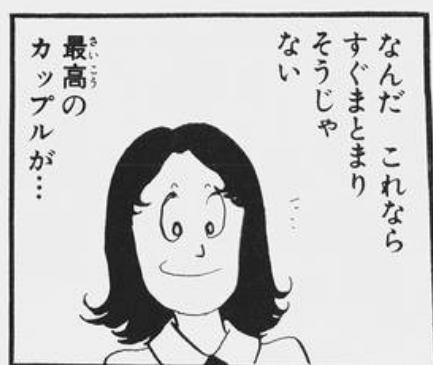 なんだ これなら
すぐまとまり
そうじゃ
ない
最高の
さいこう
カップルが…